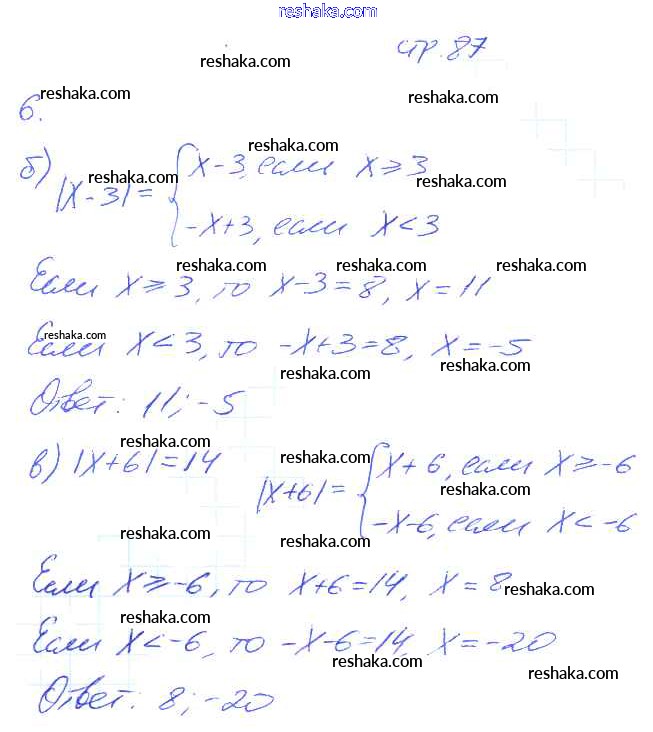 reshaka.com
стр. 87
reshaka.com
reshaka.com reshaka.com
6.
reshaka.com
б) |x-3| = { x-3, если x ⩾ 3
reshaka.com reshaka.com
-x+3, если x < 3
reshaka.com reshaka.com reshaka.com
Если x ⩾ 3, то x-3=8, x=11
reshaka.com
Если x < 3, то -x+3=8, x=-5
reshaka.com reshaka.com
Ответ: 11; -5
reshaka.com reshaka.com
в) |x+6|=14 |x+6| = { x+6, если x ⩾ -6
reshaka.com
-x-6, если x < -6
reshaka.com reshaka.com
Если x ⩾ -6, то x+6=14, x=8
reshaka.com
reshaka.com
Если x < -6, то -x-6=14, x=-20
reshaka.com reshaka.com
Ответ: 8; -20